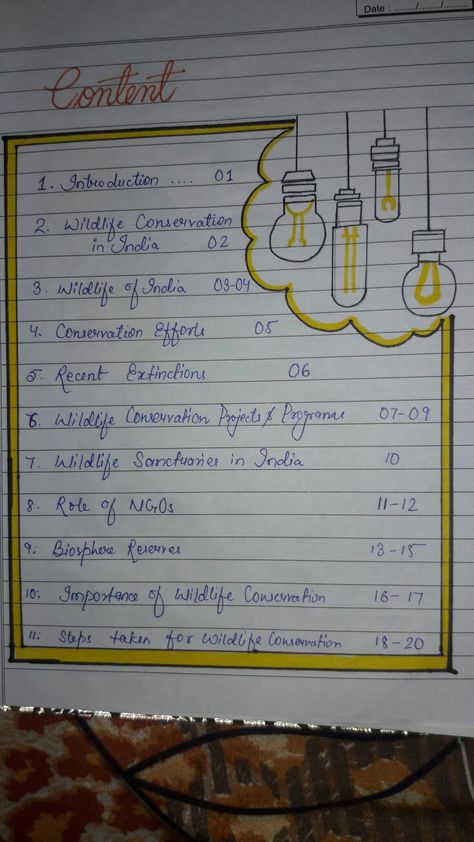 Date : ......../......../........
Content
1. Introduction .... 01
2. Wildlife Conservation
in India 02
3. Wildlife of India 03-04
4. Conservation Efforts 05
5. Recent Extinctions 06
6. Wildlife Conservation Projects & Programs 07-09
7. Wildlife Sanctuaries in India 10
8. Role of NGOs 11-12
9. Biosphere Reserves 13-15
10. Importance of Wildlife Conservation 16-17
11. Steps taken for Wildlife Conservation 18-20